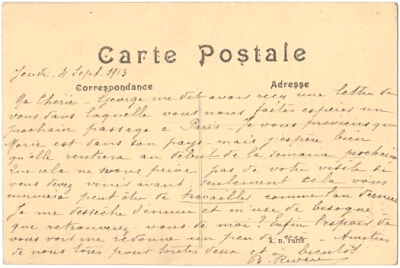 Carte Postale
Jeudi 4 Sept. 1913
Correspondance
Adresse
Ma Chérie - George me dit avoir reçu une lettre de
vous dans laquelle vous nous faites espérer un
prochain passage à Paris - je vous préviens que
Marie est dans son pays mais j'espère bien
qu'elle rentrera au début de la semaine prochaine
Que cela ne nous prive pas de votre visite si
vous devez venir avant, seulement cela vous
ennuiera peut être de travailler comme l'an dernier
Je me dessèche d'ennui et m'use de besogne -
que retrouverez vous de moi? Enfin l'espoir de
vous voir me redonne un peu Amitiés
de nous tous pour toutes deux et bientôt
A. n. Paris